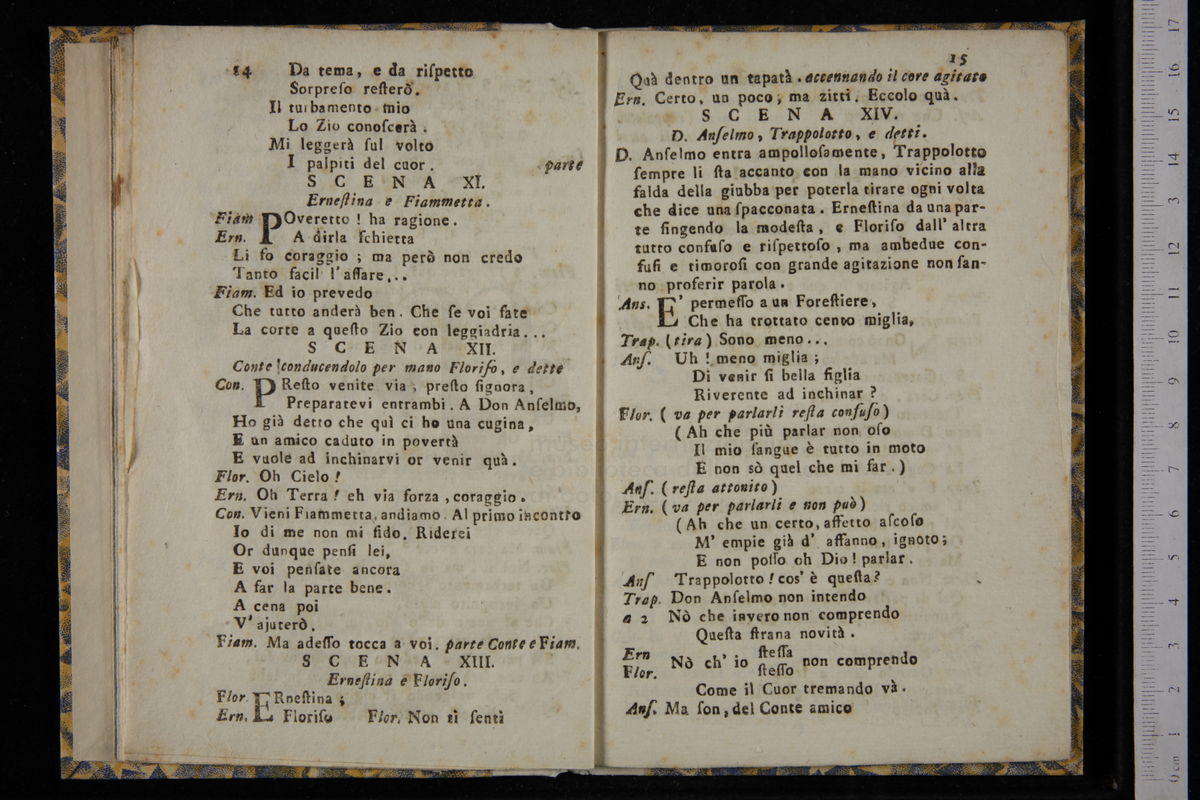 14 Da tema, e da riſpetto
Sorpreſo reſterò.
Il turbamento mio
Lo Zio conoſcerà.
Mi leggerà ſul volto
I palpiti del cuor. parte
S C E N A XI.
Erneſtina e Fiammetta.
Fiam POveretto! ha ragione.
Ern. A dirla ſchietta
Li fo coraggio; ma però non credo
Tanto facil l'affare...
Fiam. Ed io prevedo
Che tutto anderà ben. Che ſe voi fate
La corte a queſto Zio con leggiadria...
S C E N A XII.
Conte conducendolo per mano Floriſo, e dette
Con. PReſto venite via, preſto ſignora,
Preparatevi entrambi. A Don Anſelmo,
Ho già detto che quì ci ho una cugina,
E un amico caduto in povertà
E vuole ad inchinarvi or venir quà.
Flor. Oh Cielo!
Ern. Oh Terra! eh via forza, coraggio.
Con. Vieni Fiammetta, andiamo. Al primo incontro
Io di me non mi fido. Riderei
Or dunque penſi lei,
E voi penſate ancora
A far la parte bene.
A cena poi
V'ajuterò.
Fiam. Ma adeſſo tocca a voi. parte Conte e Fiam.
S C E N A XIII.
Erneſtina e Floriſo.
Flor. ERneſtina;
Ern. Floriſo Flor. Non ti ſenti
15
Quà dentro un tapatà. accennando il core agitato
Ern. Certo, un poco, ma zitti. Eccolo quà.
S C E N A XIV.
D. Anſelmo, Trappolotto, e detti.
D. Anſelmo entra ampolloſamente, Trappolotto
ſempre li ſta accanto con la mano vicino alla
falda della giubba per poterla tirare ogni volta
che dice una ſpacconata. Erneſtina da una par-
te fingendo la modeſta, e Floriſo dall' altra
tutto confuſo e riſpettoſo, ma ambedue con-
fuſi e timoroſi con grande agitazione non ſan-
no proferir parola.
Ans. E' permeſſo a un Foreſtiere,
Che ha trottato cento miglia,
Trap. (tira) Sono meno...
Anſ. Uh! meno miglia;
Di venir ſi bella figlia
Riverente ad inchinar?
Flor. (va per parlarli reſta confuſo)
(Ah che più parlar non oſo
Il mio ſangue è tutto in moto
E non sò quel che mi far.)
Anſ. (reſta attonito)
Ern. (va per parlarli e non può)
(Ah che un certo, affetto aſcoſo
M' empie già d' affanno, ignoto;
E non poſſo oh Dio! parlar.
Anſ Trappolotto! cos' è queſta?
Trap. Don Anſelmo non intendo
a 2 Nò che invero non comprendo
Queſta ſtrana novità.
Ern ſteſſa
Nò ch' io non comprendo
Flor. ſteſſo
Come il Cuor tremando và.
Anſ. Ma ſon, del Conte amico